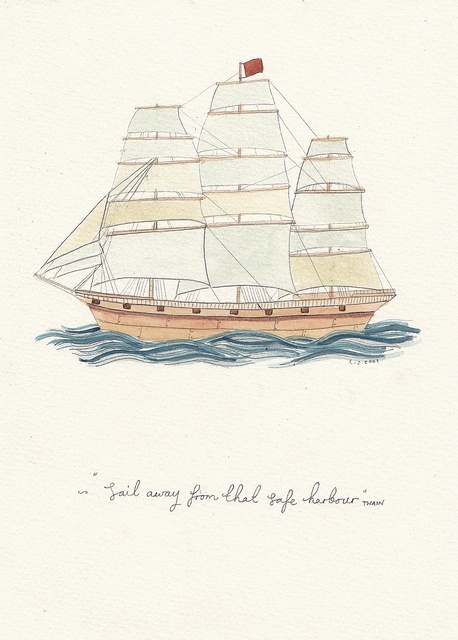 "sail away from that safe harbour" TWAIN